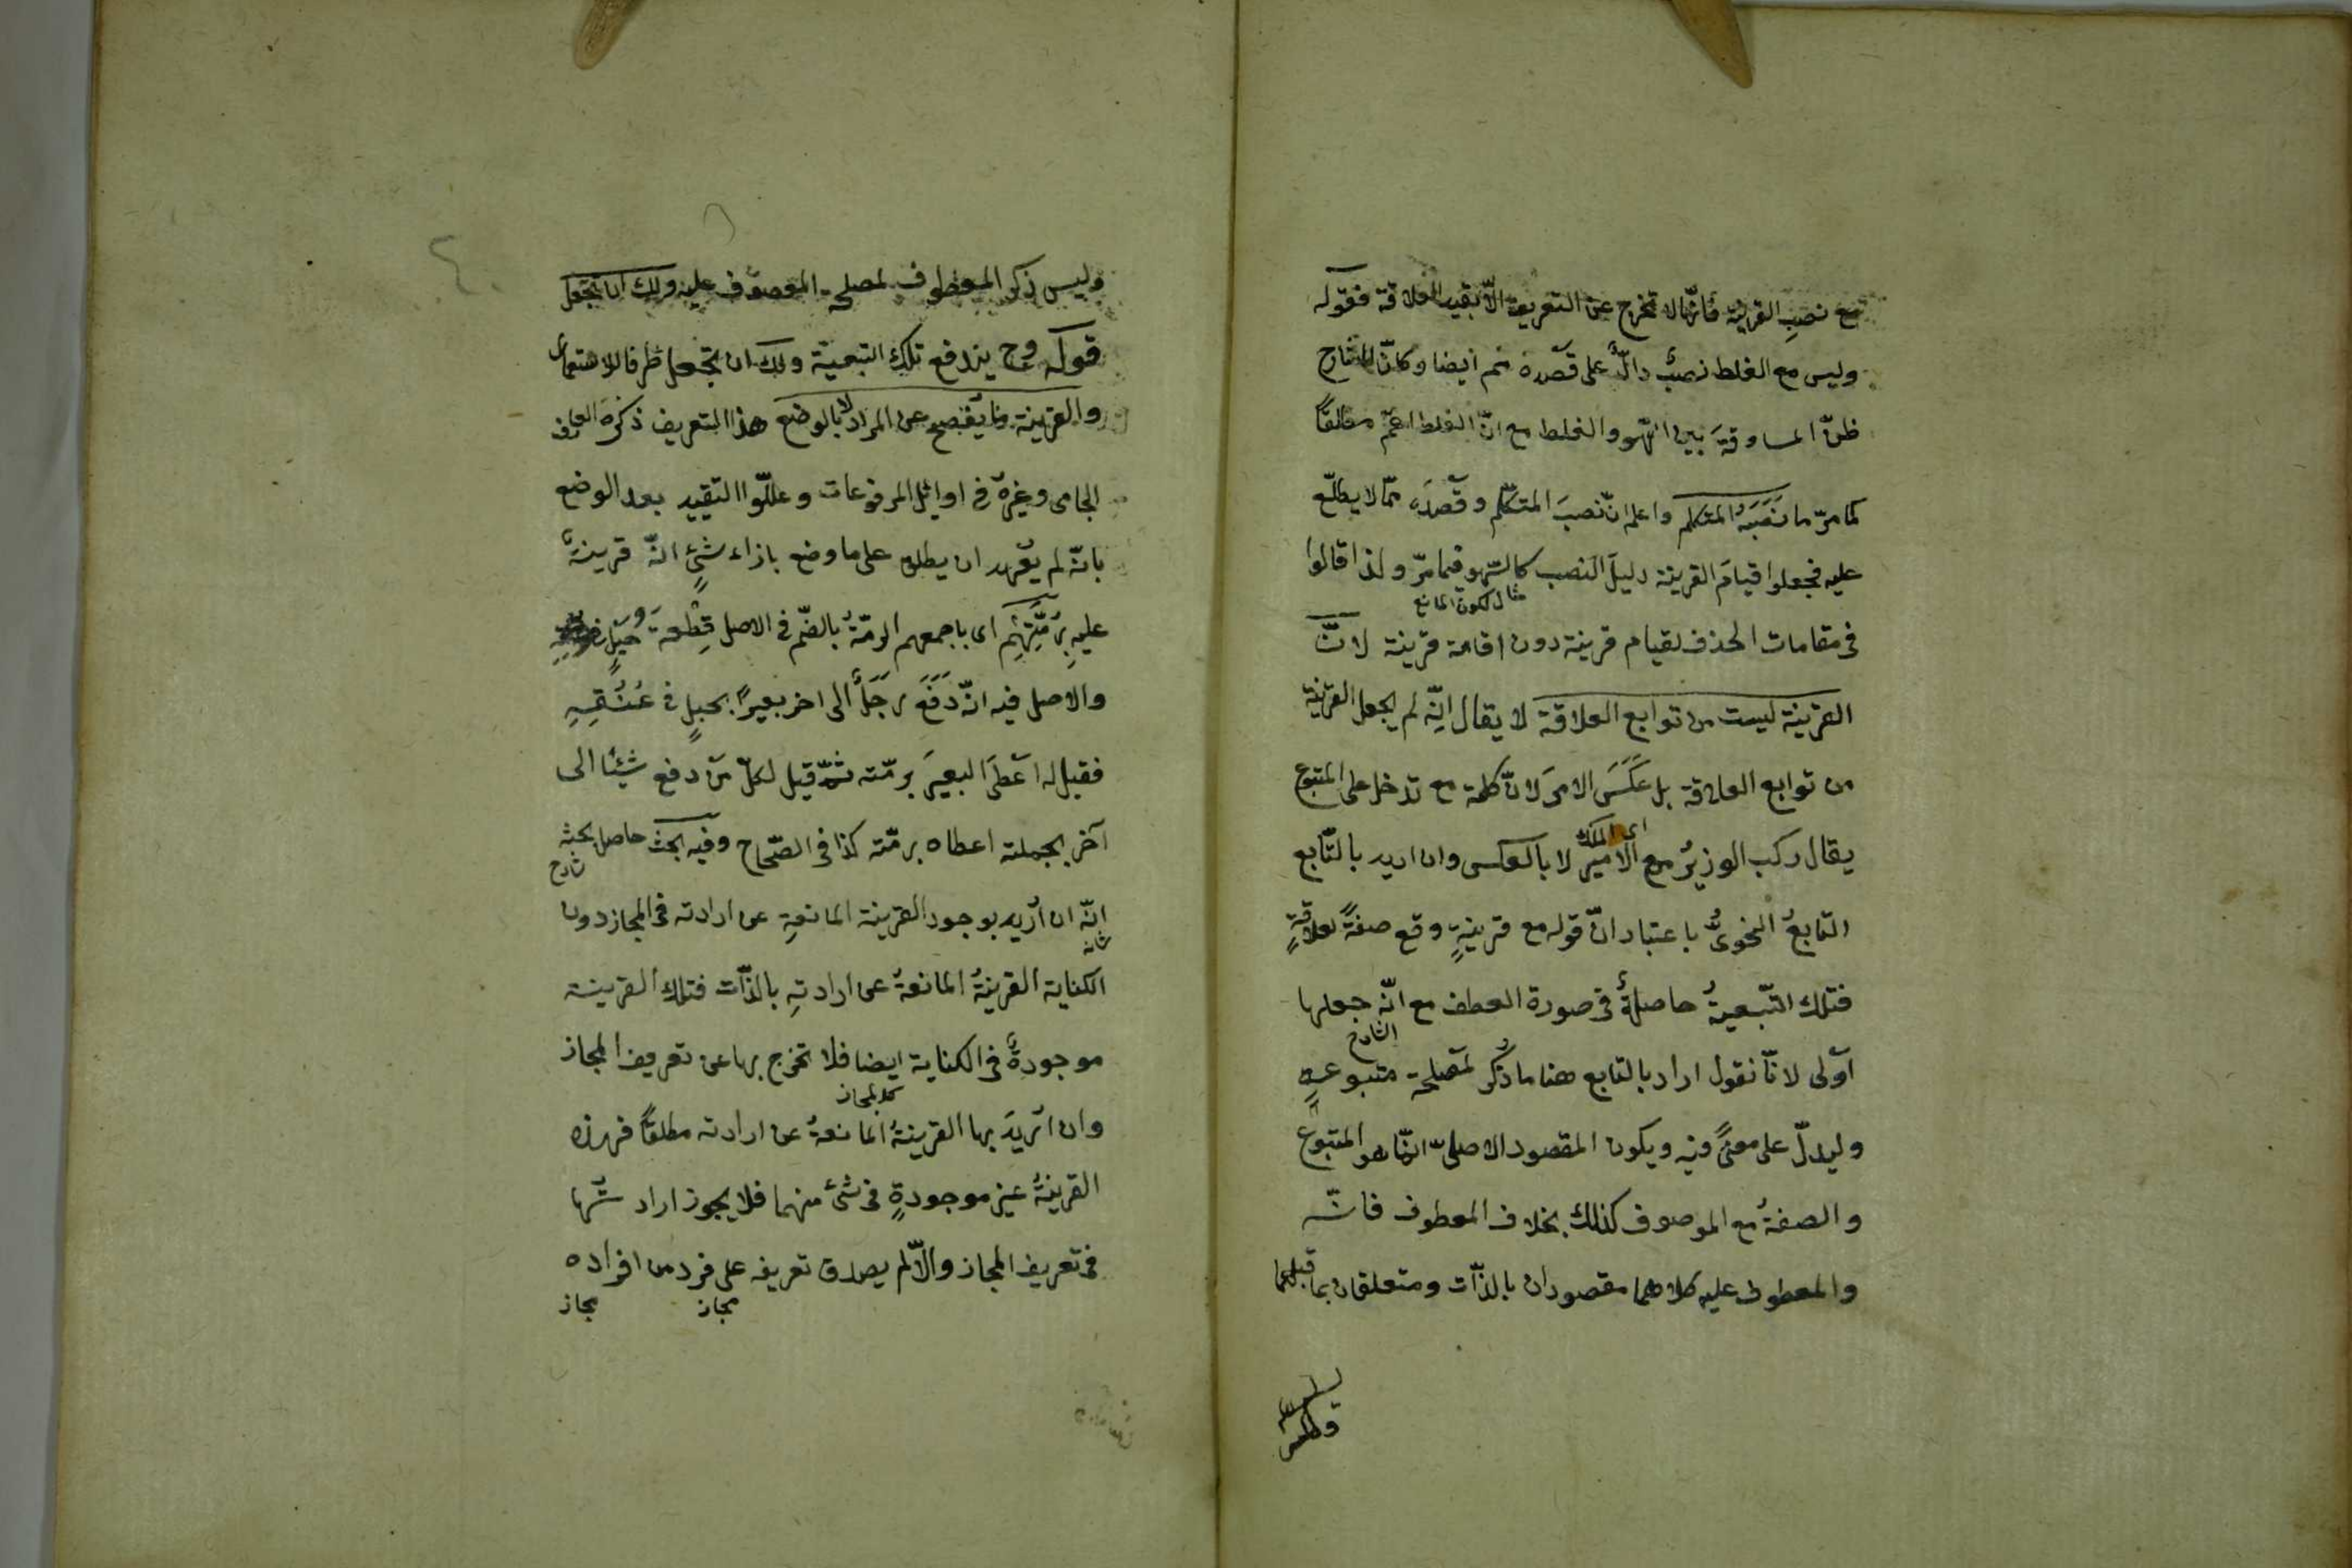 مع نصب القرينة فانّها لا تخرج عن التعريف الّا بقيد العلاقة فقوله
وليس مع الغلط نصبٌ دالٌّ على قصده ثم ايضا وكانّ الشارح
ظنّ المساوقةَ بين السّهو والغلط مع انّ الغلط اعمّ مطلقاً
كما مرّ ما نَصَبَهُ المتكلم واعلم انّ نصبَ المتكلّم وقصدَه ممّا لا يطلّع
عليه فجعلوا قيامَ القرينة دليلَ النصب كالسّهو فيما مرّ ولذا قالوا
مثال لكون المانع
فى مقامات الحذف لقيام قرينة دون اقامة قرينة لانّ
القرينة ليست من توابع العلاقة لا يقال انّه لم يجعل القرينة
من توابع العلاقة بل عَكَسَ الامرَ لانّ كلمة مع تدخل على المتبوع
اى الملك
يقال ركب الوزيرُ مع الامير لا بالعكس وان اريد بالتّابع
التابعُ النحوىُّ باعتبار انّ قوله مع قرينةٍ وقع صفةً لعلاقةٍ
فتلك التّبعيةُ حاصلةٌ فى صورة العطف مع انّه جعلها
الشارح
اَولى لانّا نقول اراد بالتابع هنا ما ذُكر لمصلحة متبوعهِ
وليدلّ على معنًى فيه ويكون المقصود الاصلىّ انّما هو المتبوع
والصفةُ مع الموصوف كذلك بخلاف المعطوف فانّه
والمعطوف عليه كلاهما مقصودان بالذّات ومتعلقان بما قبلهما
وليس
وليس ذكر المعطوف لمصلحة المعطوف عليه ولك ان تجعل
قوله وح يندفع تلك التبعيّة ولك ان تجعل ظرفا للاستعمال
والقرينة ما يُفصح عن المراد لا بالوضع هذا التعريف ذكره العارف
الجامى وغيرهُ فى اوايل المرفوعات وعلّلوا التقييد بعد الوضع
بانّه لم يُعهد ان يطلق على ما وضع بازاء شئٍ انّه قرينةٌ
عليهِ برُمَّتِهِم اى باجمعهم الرمّةُ بالضّم فى الاصل قِطْعةُ حبلٍ
والاصل فيه انّ دَفَعَ رَجَلٌ الى اخر بعيرًا بحبلٍ فى عُنُقِهِ
فقيل له اَعْطَى البعيرَ برمّته ثمّ قيل لكلّ من دفع شيئا الى
آخر بجملته اعطاه برمّته كذا فى الصّحاح وفيه بحث حاصل بحثه
شارح
انّه ان اُريد بوجود القرينة المانعةِ عن ارادته فى المجاز دون
شانه
الكناية القرينةُ المانعةُ عن ارادتهِ بالذّات فتلك القرينة
موجودةٌ فى الكناية ايضا فلا تخرج بها عن تعريف المجاز
كالمجاز
وان اُريدَ بها القرينةُ المانعةُ عن ارادته مطلقاً فهذه
القرينةُ غير موجودةٍ فى شئ منهما فلا يجوز ارادتُها
فى تعريف المجاز والّا لم يصدق تعريفه على فرد من افراده
مجاز مجاز